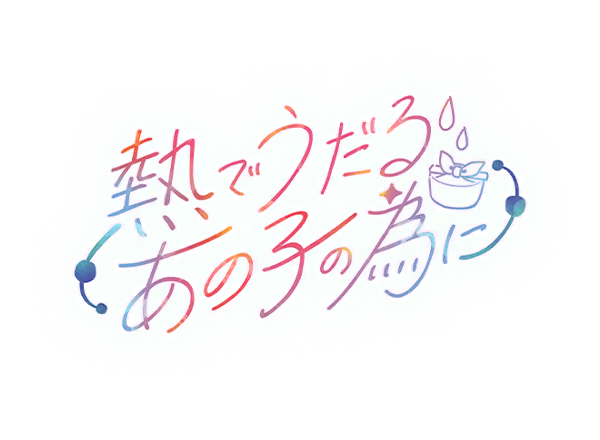 熱でうだる
あの子の為に